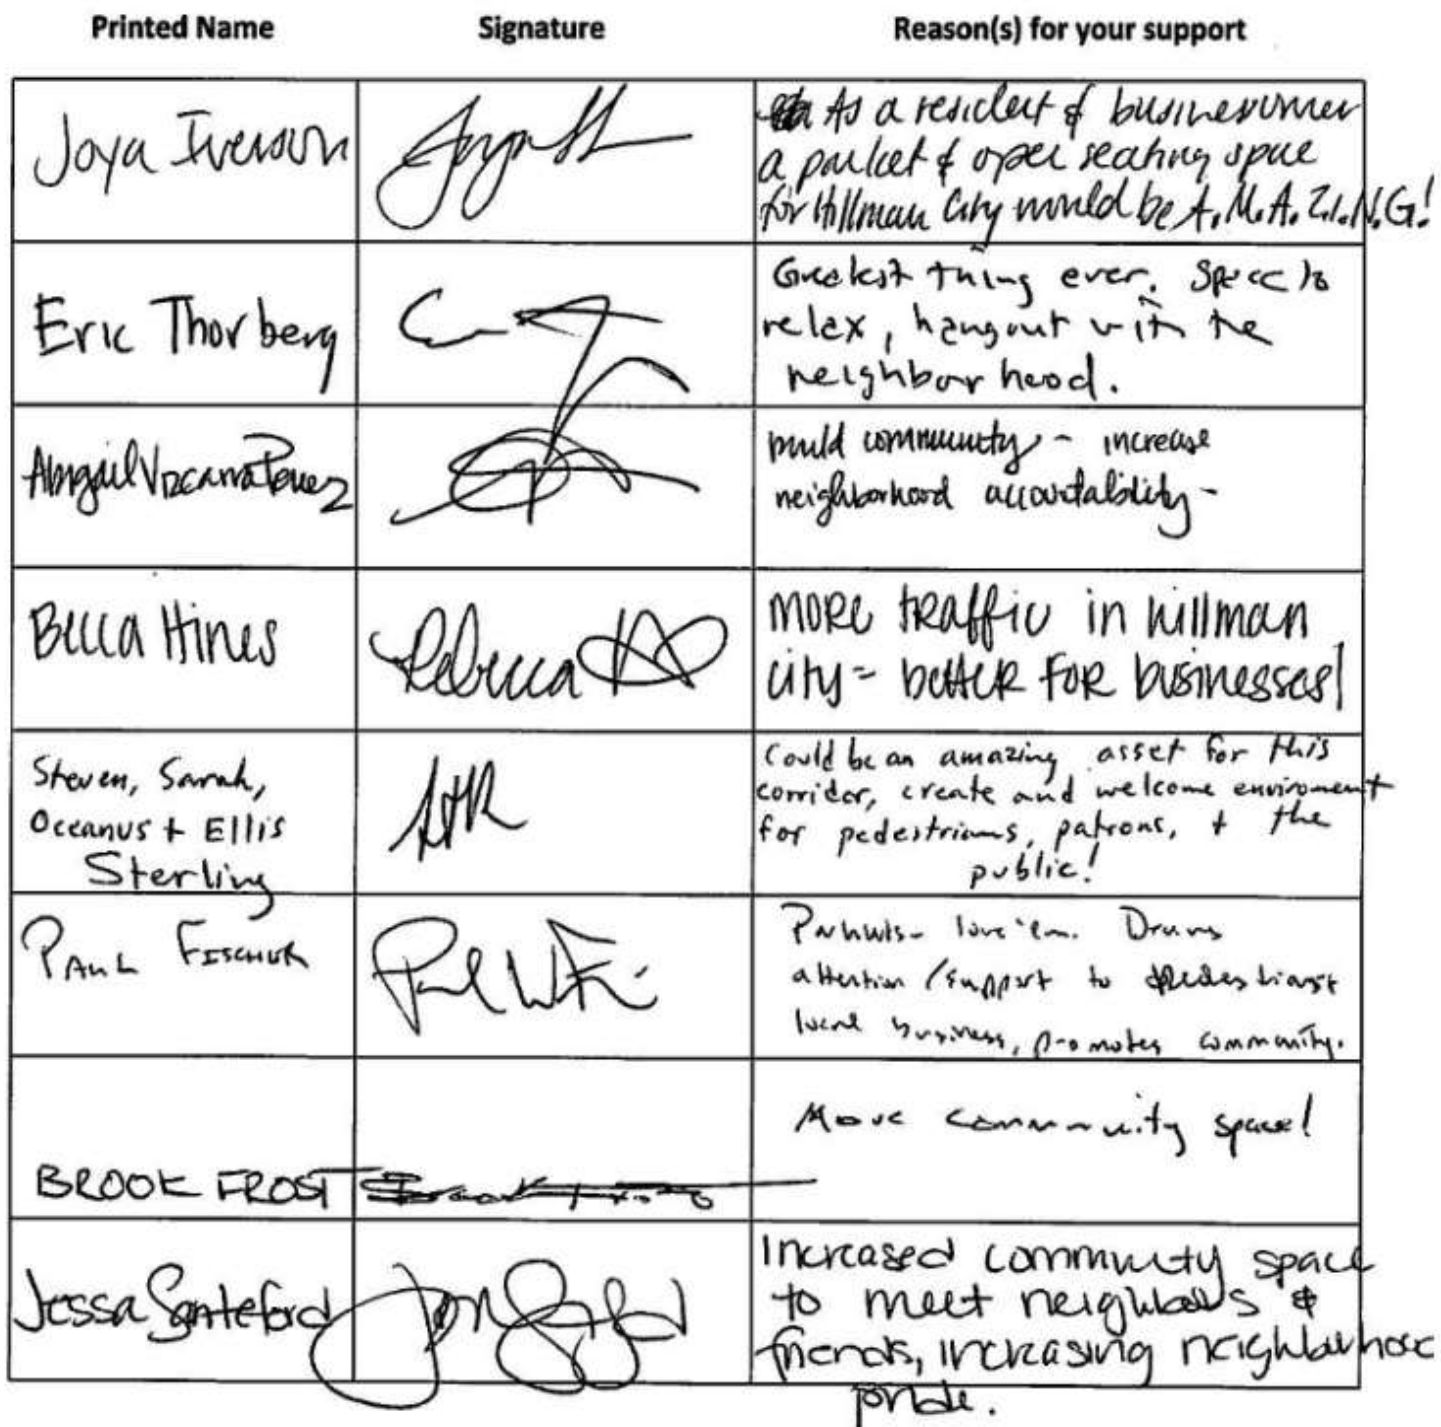 Printed Name Signature Reason(s) for your support
Joya Iverson
As a resident & businessowner
a parklet & open seating space
for Hillman City would be A.M.A.Z.I.N.G!
Eric Thorberg
Greatest thing ever. Space to
relax, hangout with the
neighborhood.
Abigail
build community - increase
neighborhood accountability -
Becca Hines
Rebecca
MORE traffic in hillman
city = better FOR businesses!
Steven, Sarah,
Oceanus + Ellis
Sterling
Could be an amazing asset for this
corridor, create and welcome enviroment
for pedestrians, patrons, + the
public!
Paul Fischer
Parklets - love 'em. Draws
attention/support to pedestrians &
local business, promotes community.
BROOK FROST
More community space!
Jessa Santeford
Increased community space
to meet neighbors &
friends, increasing neighborhood
pride.